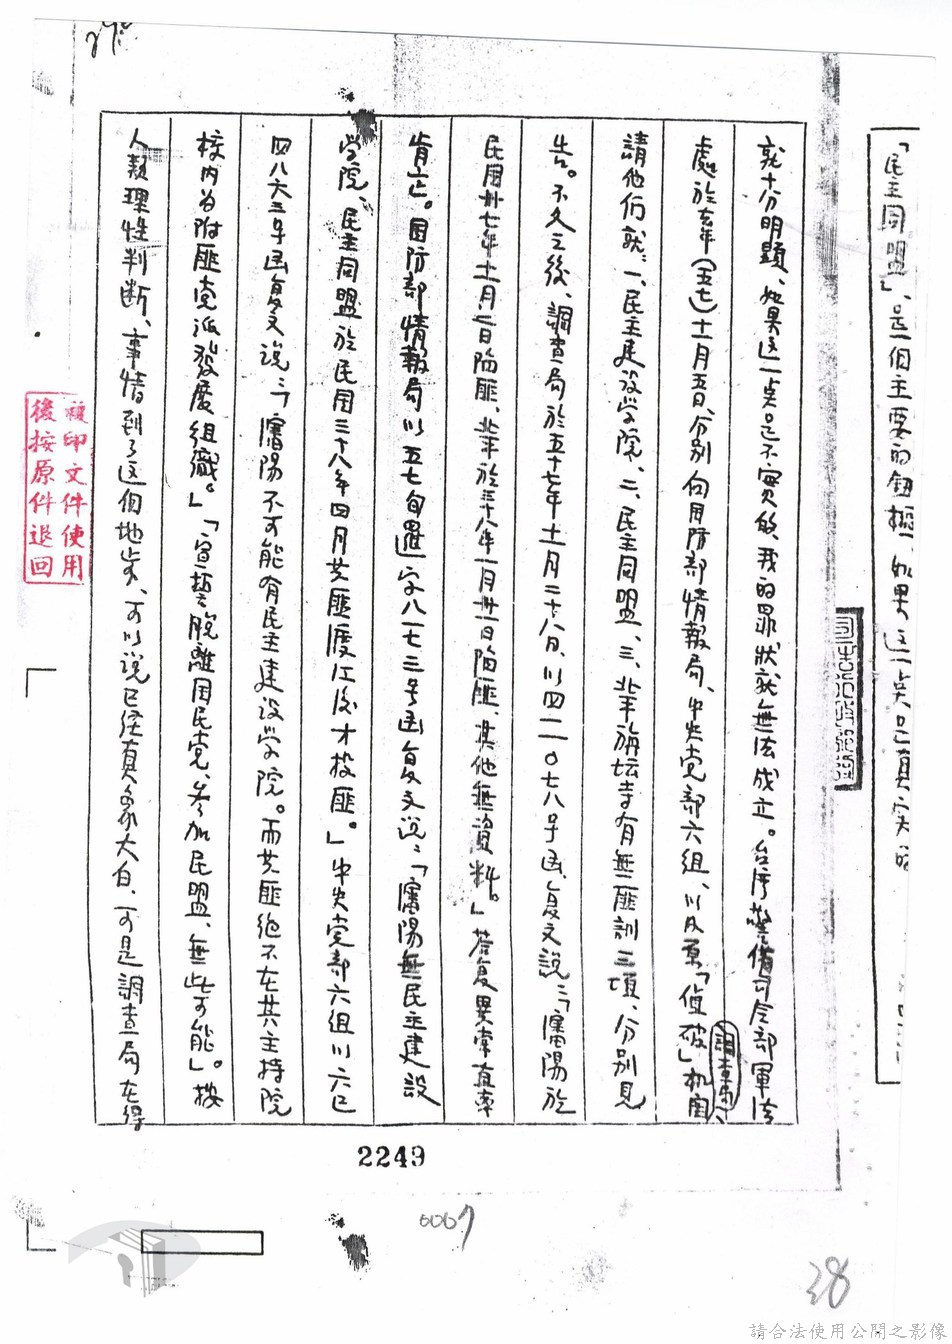 「民主同盟」、是一个主要的鈕柩、如果这一点是真实的
就十分明顯、如果这一点是不實的、我的罪狀就無法成立。台湾警備司令部軍法
處於去年(五七)十一月五日、分別向国防部情報局、中央党部六組、以及原「偵破」机関
調查局、
請他们就:一、民主建設学院、二、民主同盟、三、北平旃坛寺有無匪訓三項、分別見
告。不久之後、調查局於五十七年十一月二十八日、以四一一〇七八号函、复文說:「瀋陽於
民国卅七年十一月一日陷匪、北平於三十八年一月卅一日陷匪、其他無資料。」答复異常直率
肯定。国防部情報局以五七旬 字八一七三号函复文說:「瀋陽無民主建設
学院、民主同盟於民国三十八年四月共匪渡江後才投匪。」中央党部六組以六已
四八六三号函复文說:「瀋陽不可能有民主建設学院。而共匪絶不在其主持院
校内为附匪党派發展組織。」「宣誓脱離国民党、参加民盟、無此可能」。按
人類理性判断、事情到了这個地步、可以說已经真象大白、可是調查局在得
複印文件使用
後按原件退回
2249
0067
38
請合法使用公開之影像